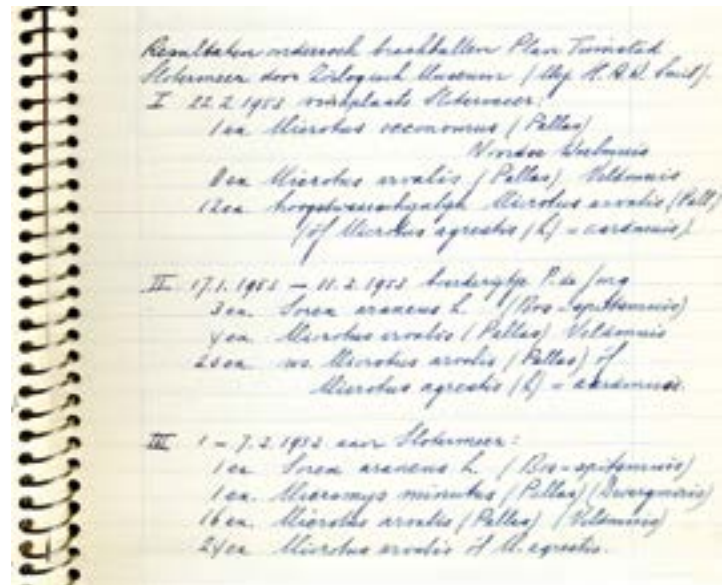 Resultaten onderzoek braakballen Plan Tuinstad
Slotermeer door Zoölogisch Museum (Mej. H.
I 22.2.1953 Slotermeer:
1 ex Microtus oeconomus (Pallas)
Noordse Woelmuis
8 ex Microtus arvalis (Pallas) Veldmuis
12 ex hoogstwaarschijnlijk Microtus arvalis (Pall)
(óf Microtus agrestis (L) = aardmuis)
II 17.1.1953 – 11.2.1953 boerderijtje P. de Jong
3 ex. Sorex araneus L. (Bos-spitsmuis)
4 ex. Microtus arvalis (Pallas) Veldmuis
25 ex ws. Microtus arvalis (Pallas) óf
Microtus agrestis (L) = aardmuis.
III 1 – 7.2.1953 aan Slotermeer:
1 ex Sorex araneus L. (Bos-spitsmuis)
1 ex. Micromys minutus (Pallas) (Dwergmuis)
16 ex. Microtus arvalis (Pallas) (Veldmuis)
24 ex Microtus arvalis óf M. agrestis.